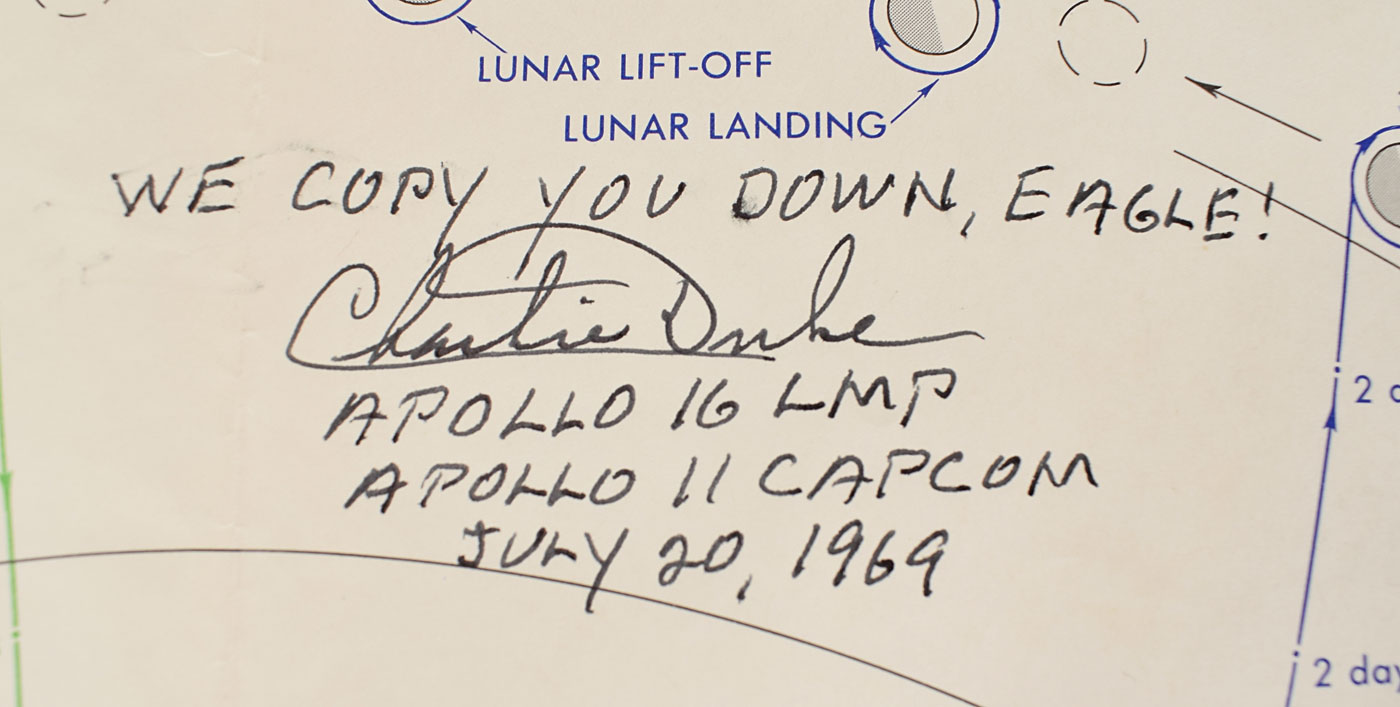 LUNAR LIFT-OFF
LUNAR LANDING
WE COPY YOU DOWN, EAGLE!
Charlie Duke
APOLLO 16 LMP
2
APOLLO 11 CAPCOM
JULY 20, 1969
2 day